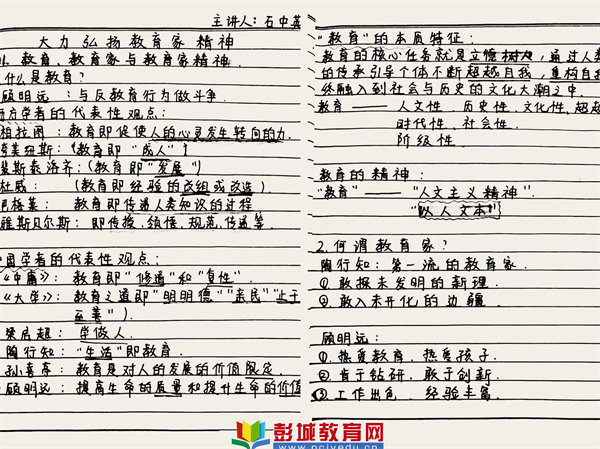 主讲人：石中英
大力弘扬教育家精神
01. 教育、教育家与教育家精神.
什么是教育？
顾明远：与反教育行为做斗争.
西方学者的代表性观点：
柏拉图：教育即促使人的心灵发生转向的力.
夸美纽斯：（教育即“成人”）
裴斯泰洛齐：（教育即“发展”）
杜威：（教育即经验的改组或改造）
教育即传递人类知识的过程
雅斯贝尔斯：即传授、领悟、规范、传递等.
中国学者的代表性观点：
《中庸》：教育即“修道”和“复性”.
《大学》：教育之道即“明明德”“亲民”“止于
至善”）.
梁启超：学做人.
陶行知：“生活”即教育.
孙喜亭：教育是对人的发展的价值限定.
顾明远：提高生命的质量和提升生命的价值
“教育”的本质特征：
教育的核心任务就是立德树人，通过人类
的传承引导个体不断超越自我，重构自我
终融入到社会与历史的文化大潮之中.
教育——人文性、历史性、文化性、超越
时代性、社会性.
阶级性.
教育的精神：
“教育”——“人文主义精神”.
“以人文本”
2.何谓教育家？
陶行知：第一流的教育家.
①敢探未发明的新理.
②敢入未开化的边疆.
顾明远：
①热爱教育、热爱孩子.
②肯于钻研、敢于创新.
③工作出色、经验丰富.
彭城教育网
www.pcjyedu.cn